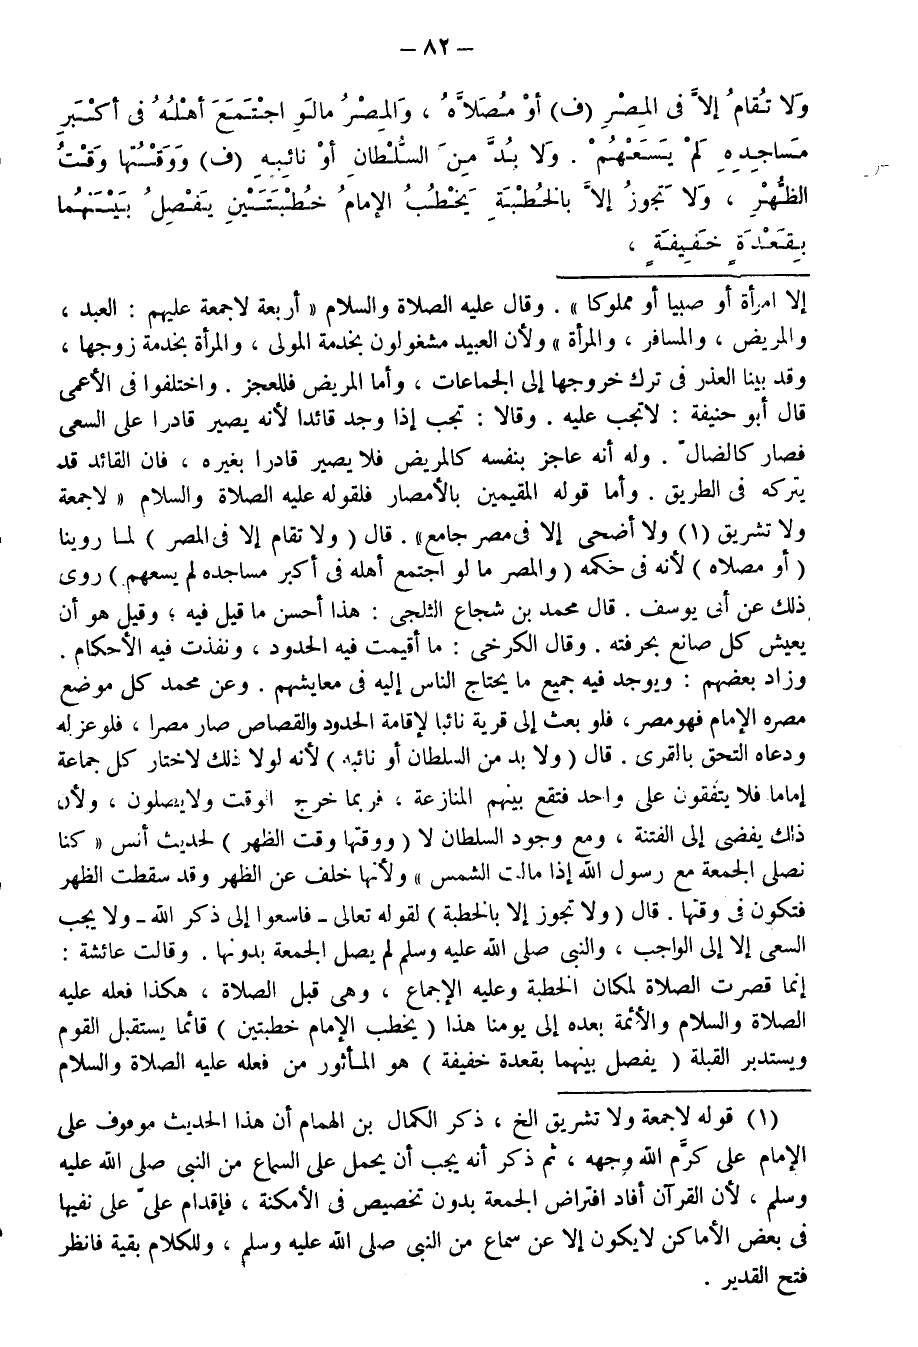 – ٨٢ –
وَلا تُقامُ إلاَّ فى المِصْرِ (ف) أوْ مُصَلاَّهُ ، وَالمِصْرُ مالَوِ اجْتَمَعَ أهْلُهُ فى أكْبَرِ
مَساجِدِهِ لَمْ يَسَعْهُمْ . وَلا بُدَّ مِنَ السُّلْطانِ أوْ نائِبِهِ (ف) وَوَقْتُها وَقْتُ
الظُّهْرِ ، وَلا تَجوزُ إلاَّ بالخُطْبَةِ يَخْطُبُ الإمامُ خُطْبَتَيْنِ يَفْصِلُ بَيْنَهُما
بِقَعْدَةٍ خَفِيفَةٍ ،
إلا امرأة أو صبيا أو مملوكا » . وقال عليه الصلاة والسلام « أربعة لاجمعة عليهم : العبد ،
والمريض ، والمسافر ، والمرأة » ولأن العبيد مشغولون بخدمة المولى ، والمرأة بخدمة زوجها ،
وقد بينا العذر فى ترك خروجها إلى الجماعات ، وأما المريض فللعجز . واختلفوا فى الأعمى
قال أبو حنيفة : لاتجب عليه . وقالا : تجب إذا وجد قائدا لأنه يصير قادرا على السعى
فصار كالضالّ . وله أنه عاجز بنفسه كالمريض فلا يصير قادرا بغيره ، فان القائد قد
يتركه فى الطريق . وأما قوله المقيمين بالأمصار فلقوله عليه الصلاة والسلام « لاجمعة
ولا تشريق (١) ولا أضحى إلا فى مصر جامع» . قال ( ولا تقام إلا فى المصر ) لما روينا
( أو مصلاه ) لأنه فى حكمه ( والمصر ما لو اجتمع أهله فى أكبر مساجده لم يسعهم ) روى
ذلك عن أبى يوسف . قال محمد بن شجاع الثلجى : هذا أحسن ما قيل فيه ؛ وقيل هو أن
يعيش كل صانع بحرفته . وقال الكرخى : ما أقيمت فيه الحدود ، ونفذت فيه الأحكام .
وزاد بعضهم : ويوجد فيه جميع ما يحتاج الناس إليه فى معايشهم . وعن محمد كل موضع
مصره الإمام فهو مصر ، فلو بعث إلى قرية نائبا لإقامة الحدود والقصاص صار مصرا ، فلو عزله
ودعاه التحق بالقرى . قال ( ولا بد من السلطان أو نائبه ) لأنه لولا ذلك لاختار كل جماعة
إماما فلا يتفقون على واحد فتقع بينهم المنازعة ، فربما خرج الوقت ولايصلون ، ولأن
ذلك يفضى إلى الفتنة ، ومع وجود السلطان لا ( ووقتها وقت الظهر ) لحديث أنس « كنا
نصلى الجمعة مع رسول الله إذا مالت الشمس » ولأنها خلف عن الظهر وقد سقطت الظهر
فتكون فى وقتها . قال ( ولا تجوز إلا بالخطبة ) لقوله تعالى ـ فاسعوا إلى ذكر الله ـ ولا يجب
السعى إلا إلى الواجب ، والنبى صلى الله عليه وسلم لم يصل الجمعة بدونها . وقالت عائشة :
إنما قصرت الصلاة لمكان الخطبة وعليه الإجماع ، وهى قبل الصلاة ، هكذا فعله عليه
الصلاة والسلام والأئمة بعده إلى يومنا هذا ( يخطب الإمام خطبتين ) قائما يستقبل القوم
ويستدبر القبلة ( يفصل بينهما بقعدة خفيفة ) هو المأثور من فعله عليه الصلاة والسلام
(١) قوله لاجمعة ولا تشريق الخ ، ذكر الكمال بن الهمام أن هذا الحديث موقوف على
الإمام على كرَّم الله وجهه ، ثم ذكر أنه يجب أن يحمل على السماع من النبى صلى الله عليه
وسلم ، لأن القرآن أفاد افتراض الجمعة بدون تخصيص فى الأمكنة ، فإقدام علىّ على نفيها
فى بعض الأماكن لايكون إلا عن سماع من النبى صلى الله عليه وسلم ، وللكلام بقية فانظر
فتح القدير .